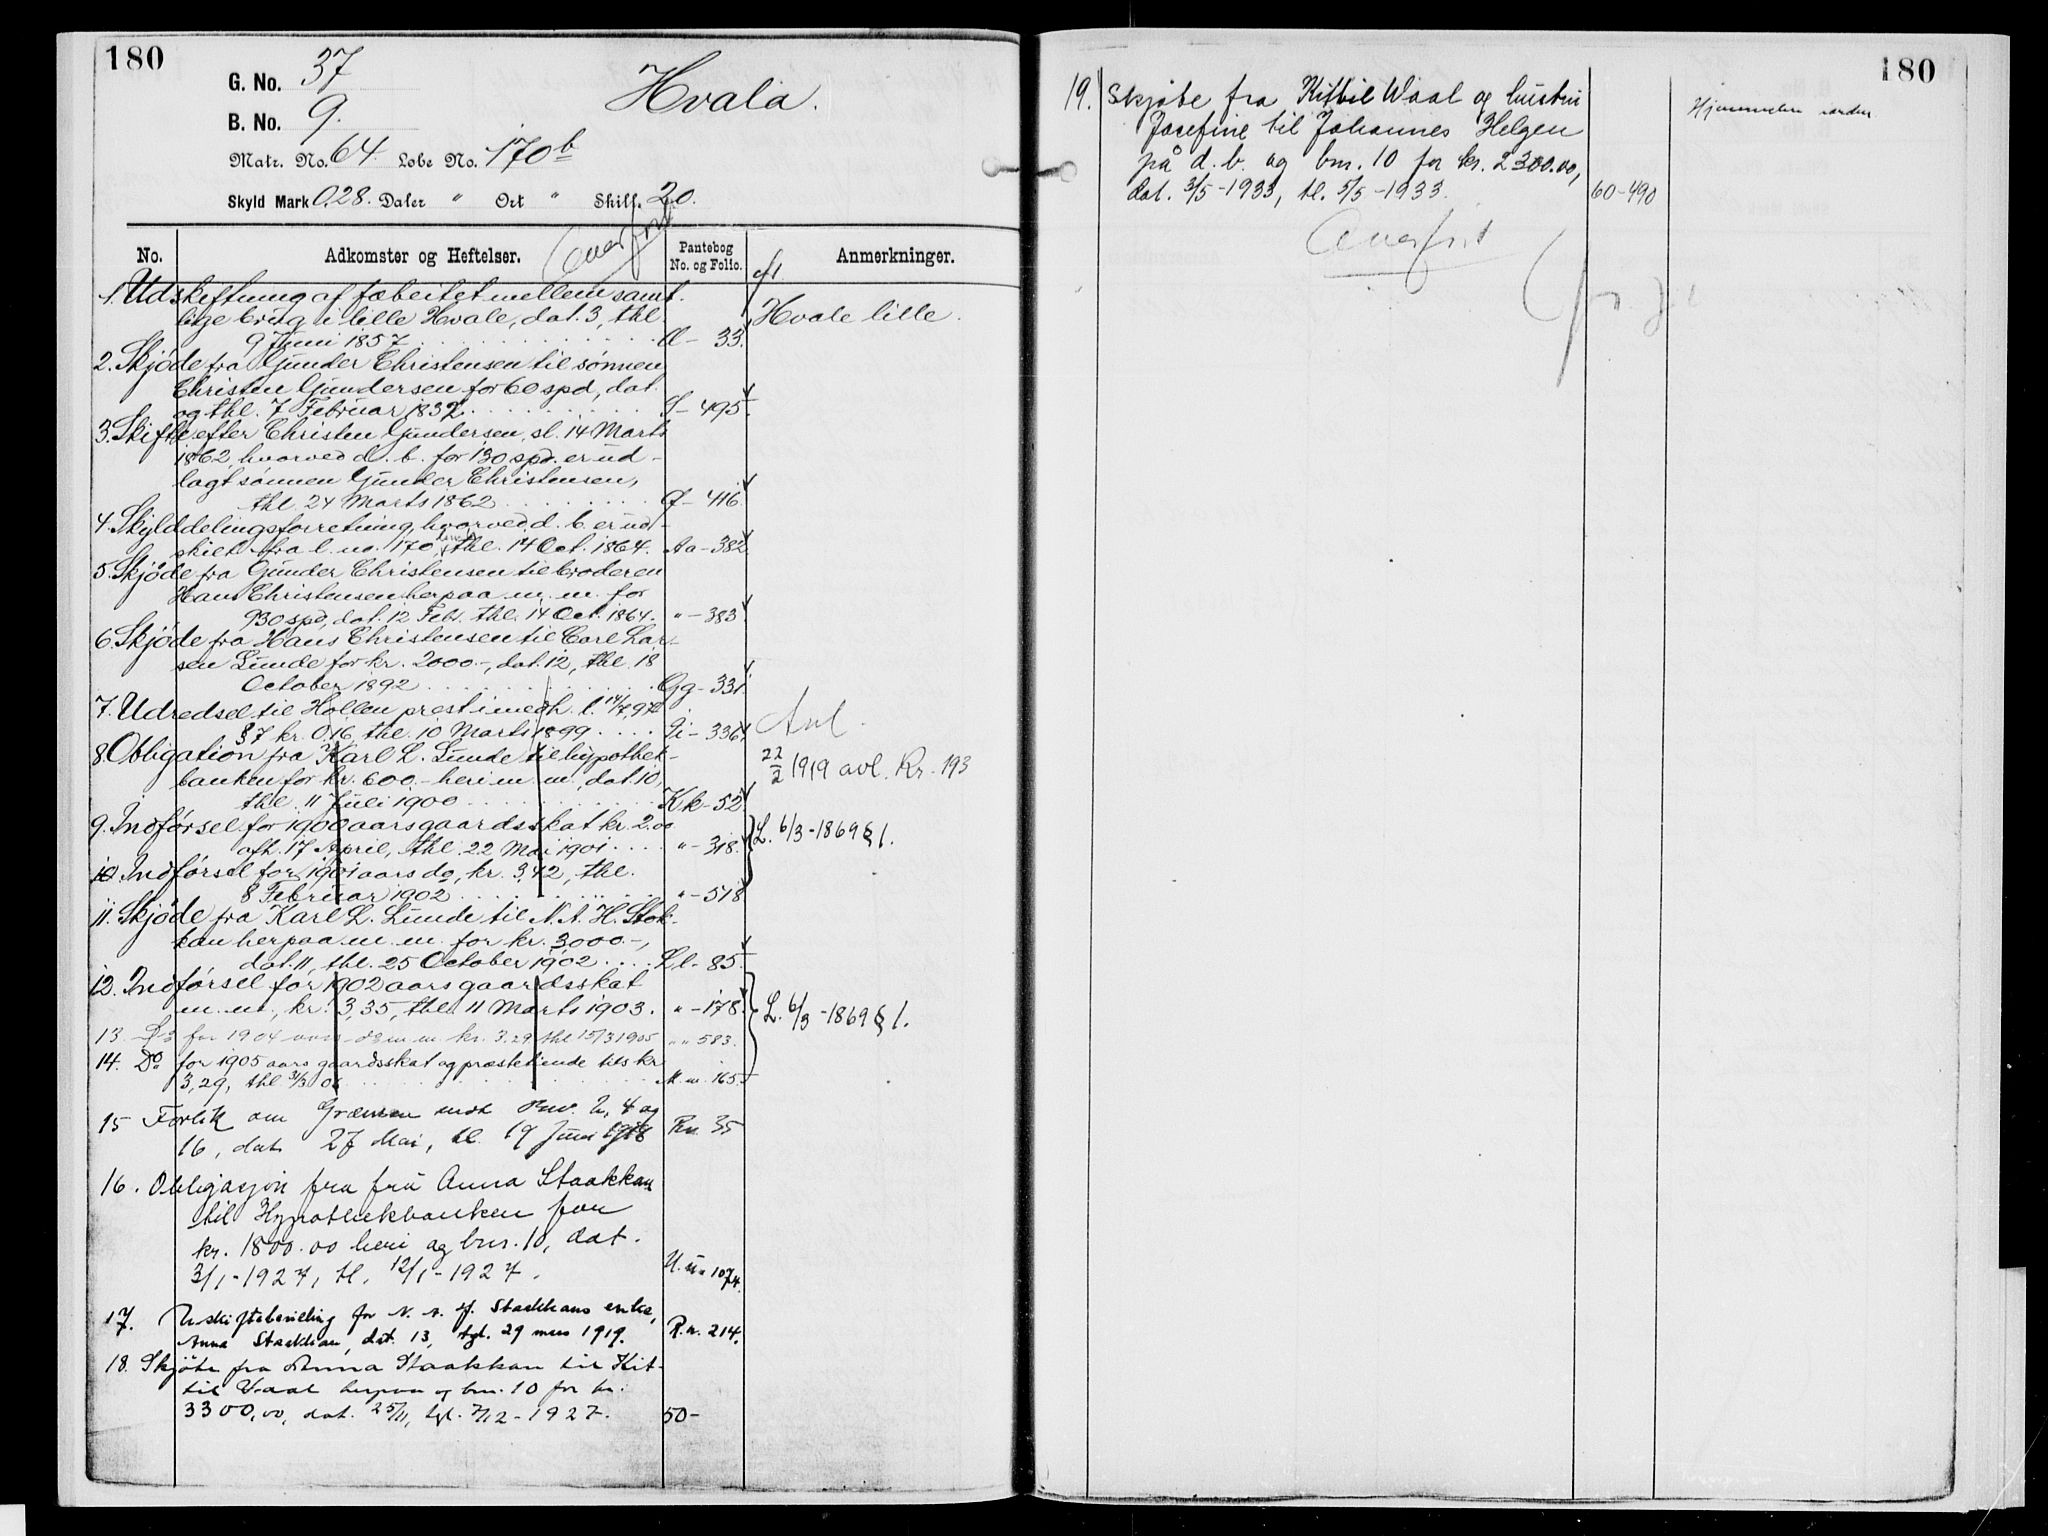 180
G. No. 37
B. No. 9.
Hvala.
Matr. No. 64. Løbe No. 170b
Skyld Mark 0.28. Daler " Ort " Skill. 20.
Overført
No. Adkomster og Heftelser. Pantebog No. og Folio. Anmerkninger.
1. Udskiftning af fæbeitet mellem samt-
lige brug i lille Hvale, dat. 3, thl.
9 Juni 1857 33.
cfr. Hvale lille.
2. Skjøde fra Gunder Christensen til sønnen
Christen Gundersen for 60 spd, dat.
og thl. 7 Februar 1832 S - 495
3. Skifte efter Christen Gundersen, sl. 14 Marts
1862, hvorved d. b. for 130 spd. er ud-
lagt sønnen Gunder Christensen,
thl. 24 Marts 1862 - 416
4. Skylddelingsforretning, hvorved d. b. er ud-
skilt fra l. no. 170, thl. 14 Oct. 1864. Aa - 382
5. Skjøde fra Gunder Christensen til broderen
Hans Christensen herpaa m. m. for
930 spd, dat. 12 Febr. thl. 14 Oct. 1864. " - 383
6. Skjøde fra Hans Christensen til Carl Lar-
sen Lunde for kr. 2000.-, dat. 12, thl. 18
October 1892 Gg - 331
7. Udredsel til Hollen prest i medh. l.
§ 7 kr. 0,16, thl. 10 Marts 1899 Ii - 336
Avl.
8. Obligation fra Karl L. Lunde til hypothek-
banken for kr. 600.- heri m. m., dat. 10,
thl. 11 Juli 1900 Kk - 52
22/2 1919 avl. Kr. 193
9. Indførsel for 1900 aars gaardsskat kr. 2.00
afh. 17 April, thl. 22 Mai 1901 " - 318.
L. 6/3 - 1869 § 1.
10. Indførsel for 1901 aars do, kr. 3,42, thl.
8 Februar 1902 " - 518
11. Skjøde fra Karl L. Lunde til N. A. H. Stok-
kan herpaa m. m. for kr. 3000.-,
dat. 11, thl. 25 October 1902 Ll - 85.
12. Indførsel for 1902 aars gaardsskat
m. m., kr. 3,35, thl. 11 Marts 1903. " - 178.
L. 6/3 - 1869 § 1.
13 Do for 1904 aars do m m kr. 3.29 thl 15/3 1905 " " 583.
14. Do for 1905 aars gaardsskat og præstetiende tils kr
3,29, thl 31/3 06 M m. 165
15 Forlik om Grænsen mot Bno. 2, 4 og
16, dat. 27 Mai, tl. 19 Juni 1918 Rn. 35
16. Obligasjon fra fru Anna Staakkan
til Hypothekbanken for
kr. 1800.00 heri og bnr. 10, dat.
3/1 - 1927, tl. 12/1 - 1927. 1074.
17. Uskiftebevilling for N. A. H. Staakkans enke,
Anna Staakkan, dat. 13, tgl. 29 mars 1919. R.n. 214.
18. Skjøte fra Anna Staakkan til Kit-
til Vaal herpaa og bnr. 10 for kr.
3300,00, dat. 25/11, tgl. 7/12 - 1927. 50 -
180
19. Skjøte fra Kittil Waal og hustru
Josefine til Johannes Helgen
på d. b. og bnr. 10 for kr. 2300.00,
dat. 3/5 - 1933, tl. 5/5 - 1933. 60 - 490
Hjemmelen i orden
Overført